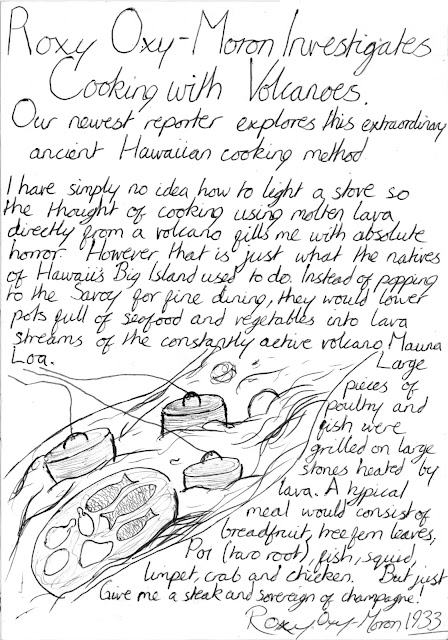 Roxy Oxy-Moron Investigates
Cooking with Volcanoes.
Our newest reporter explores this extraordinary
ancient Hawaiian cooking method
I have simply no idea how to light a stove so
the thought of cooking using molten lava
directly from a volcano fills me with absolute
horror. However that is just what the natives
of Hawaii's Big Island used to do. Instead of popping
to the Savoy for fine dining, they would lower
pots full of seafood and vegetables into lava
streams of the constantly active volcano Mauna
Loa.
Large
pieces of
poultry and
fish were
grilled on large
stones heated by
lava. A typical
meal would consist of
breadfruit, tree fern leaves,
Poi (taro root), fish, squid,
limpet, crab and chicken. But just
Give me a steak and sovereign of champagne.
Roxy Oxy-Moron 1933